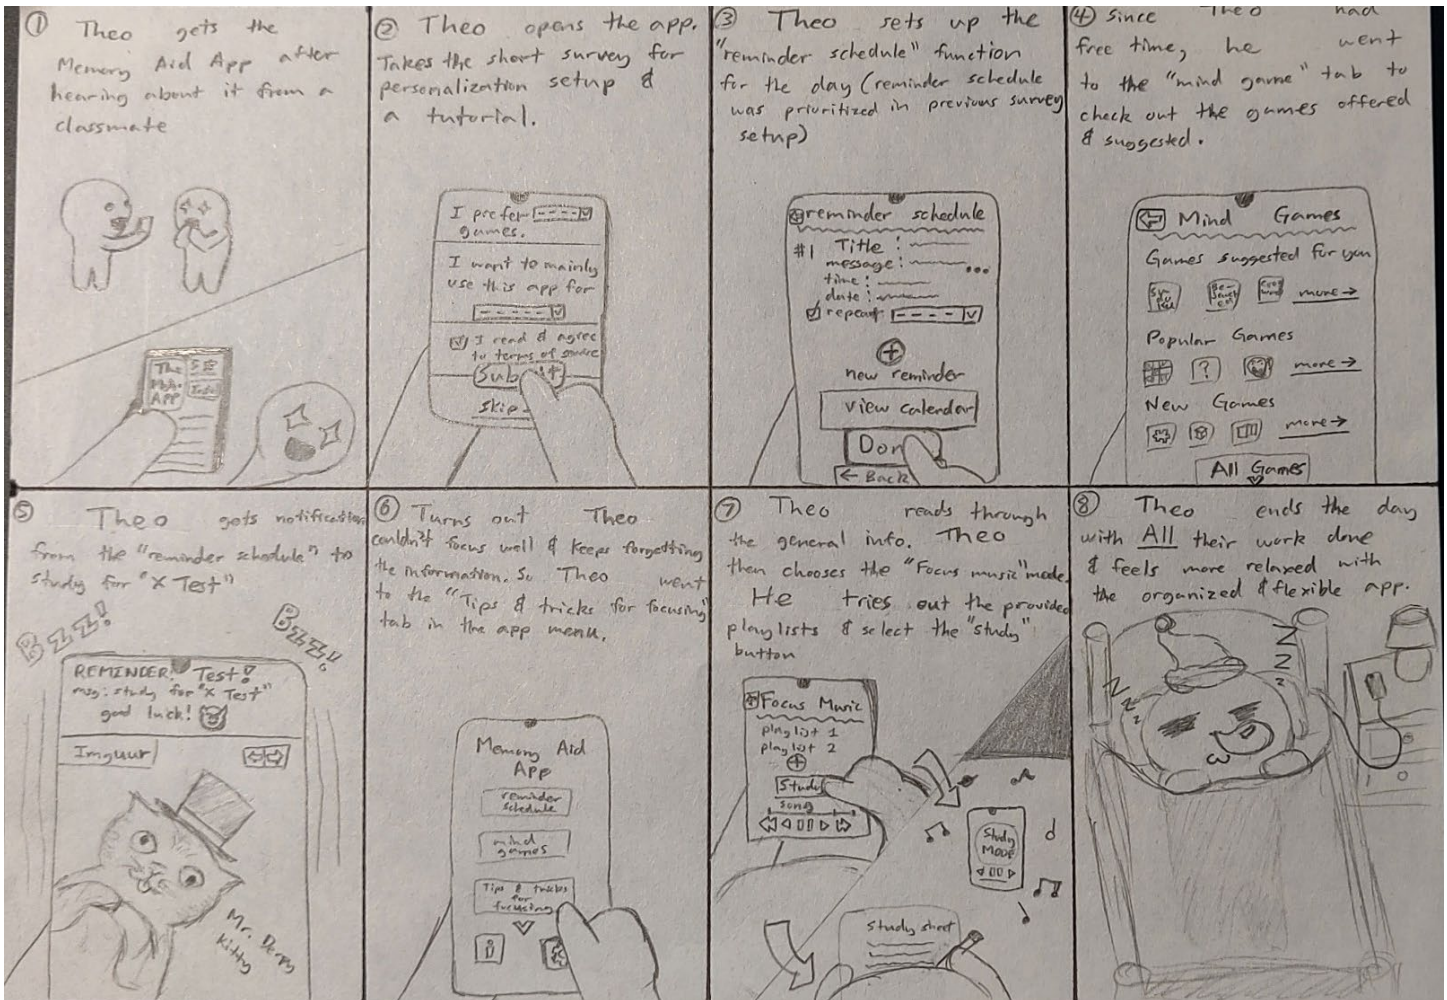 ① Theo gets the
Memory Aid App after
hearing about it from a
classmate
The
MA.
APP
② Theo opens the app.
Takes the short survey for
personalization setup &
a tutorial.
I prefer
games.
I want to mainly
use this app for
I read & agree
to terms of service
Submit
Skip
③ Theo sets up the
"reminder schedule" function
for the day (reminder schedule
was prioritized in previous survey
setup)
reminder schedule
#1 Title :
message :
time :
date :
repeat
new reminder
view calendar
Don
← Back
④ Since Theo had
free time, he went
to the "mind game" tab to
check out the games offered
& suggested.
Mind Games
Games suggested for you
more →
Popular Games
?
more →
New Games
more →
All Games
⑤ Theo gets notification
from the "reminder schedule" to
study for "X Test"
Bzz!
Bzz!
REMINDER: Test!
msg: study for "X Test"
good luck!
Imguur
Mr. Derpy
Kitty
⑥ Turns out Theo
couldn't focus well & keeps forgetting
the information. So Theo went
to the "Tips & tricks for focusing"
tab in the app menu.
Memory Aid
App
reminder
schedule
mind
games
Tips & tricks
for
focusing
i
⑦ Theo reads through
the general info. Theo
then chooses the "Focus music" mode.
He tries out the provided
playlists & select the "study"
button
Focus Music
playlist 1
playlist 2
Study
song
Study
Mode
Study sheet
⑧ Theo ends the day
with All their work done
& feels more relaxed with
the organized & flexible app.
Z Z Z
Z Z Z